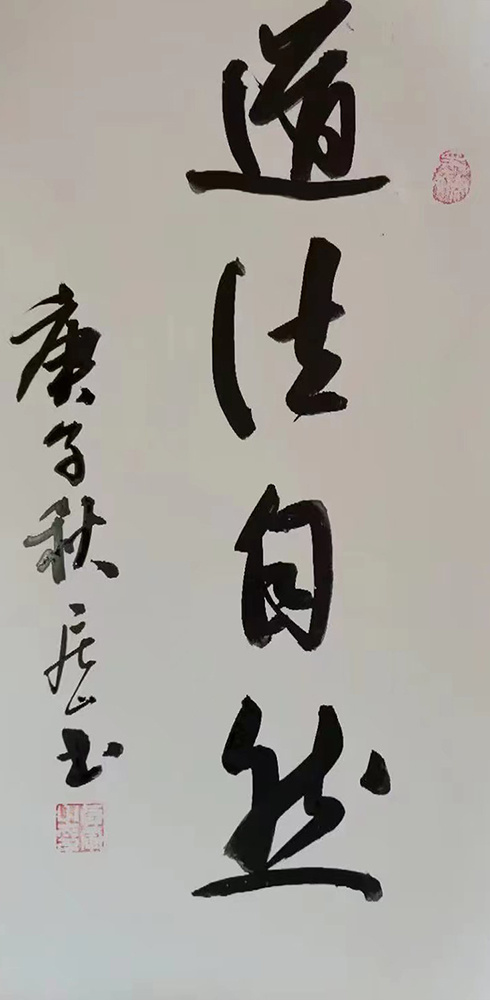 道法自然
庚子秋居山书